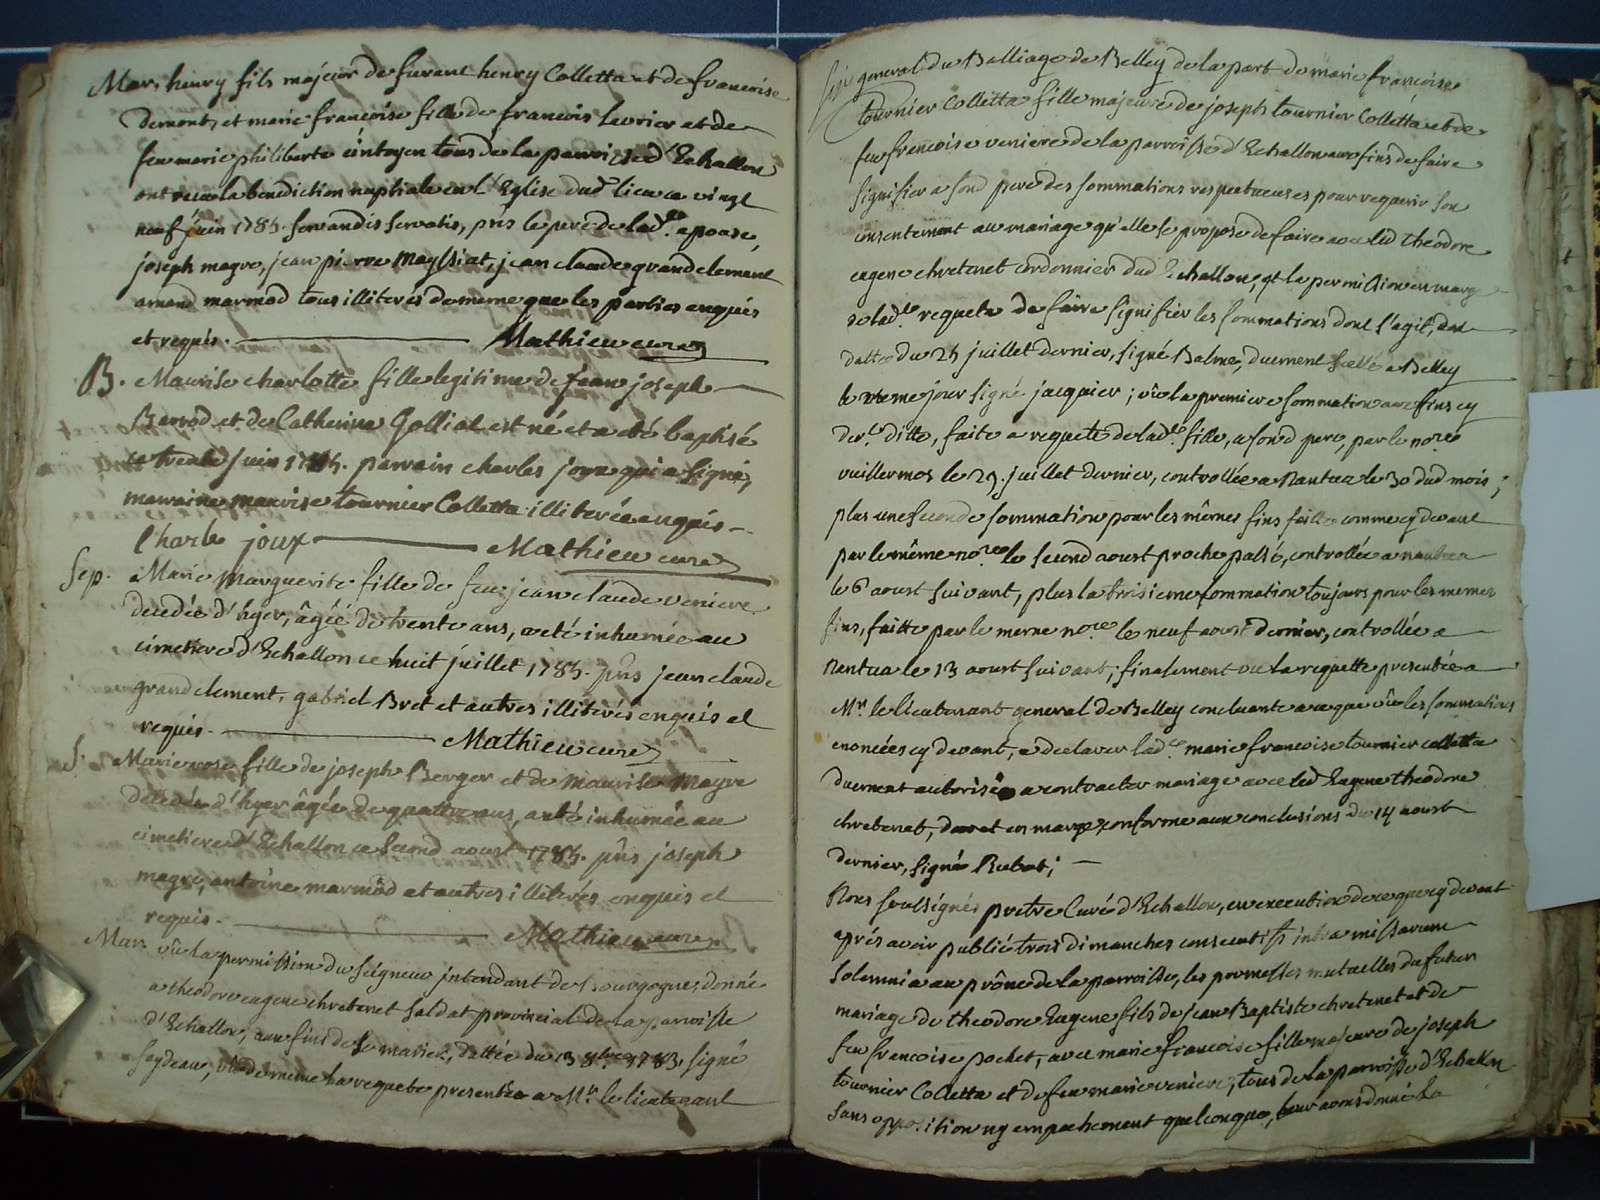 Mar. henry fils majeur de furent henry Colletta et de francoise
demont, et marie francoise fille de francois Levrier et de
feu marie philiberte tous de la parroisse d'Echallon
ont recu la benediction nuptiale en l'Eglise dud lieu ce vingt
neuf juin 1784. servandis servatis, pns le pere de lad.te epouse,
joseph magre, jean pierre Mayssiat, jean claude grandclement
amand marmod tous illiterés de meme que les parties enquis
et requis. Mathieu curé
B. Maurise charlotte fille legitime de jean joseph
Berrod et de Catherine Golliat est né et a eté baptisé
le trente juin 1784. parrain charles joux qui a signé,
marraine maurise tournier Colletta illiterée enquis
Charle joux Mathieu curé
Sep. Marie Marguerite fille de feu jean claude veniere
decedée d'hyer, âgée de trente ans, a eté inhumée au
cimetiere d'Echallon ce huit juillet 1784. pns jean claude
grandclement, gabriel Bret et autres illiterés enquis et
requis. Mathieu curé
S. Marie rose fille de joseph Berger et de maurise Magre
decedée d'hyer âgée de quatre ans, a eté inhumée au
cimetiere d'Echallon ce second aoust 1784. pns joseph
magre, antoine marmod et autres illiterés enquis et
requis. Mathieu curé
Mar. vû la permission du seigneur intendant de Bourgogne, donné
a theodore eugene chretenet soldat provincial de la parroisse
d'Echallon, aux fins de se marier, dattée du 13 8bre 1783, signé
feydeau, vû de meme la requete presentée a Mr. le lieutenant
general du Balliage de Belley de la part de marie francoise
tournier Colletta fille majeure de joseph tournier Colletta et de
feu francoise veniere de la parroisse d'Echallon aux fins de faire
signifier a sond pere des sommations respectueuses pour requerir son
consentement au mariage qu'elle se propose de faire avec led theodore
eugene chretenet cordonnier dud Echallon, et la permission en marge
de lad.te requete de faire signifier les sommations dont s'agit, en
datte du 24 juillet dernier, signé Balme, duement scellé a Belley
le meme jour signé jacquier; vû la premiere sommation aux fins cy
der.t ditte, faite a requete de lad.te fille, a sond pere, par le no.re
vuillermoz le 29. juillet dernier, controllée a Nantua le 30 dud mois;
plus une seconde sommation pour les mêmes fins faitte comme cy devant
par le même no.re le second aoust proche passé, controllée a nantua
le 6 aoust suivant, plus la troisieme sommation toujours pour les memes
fins, faitte par le meme no.re le neuf aoust dernier, controllée a
Nantua le 13 aoust suivant; finalement vu la requette presentée a
Mr. le lieutenant general de Belley concluante a ce que vû les sommations
enoncées cy devant, a declarer lad.te marie francoise tournier colletta
duement autorisée a contracter mariage avec led Eugene theodore
chretenet, decret en marge conforme aux conclusions du 14 aoust
dernier, signé Rubat;
Nous soussigné pretre Curé d'Echallon, en execution de ce que cy devant
aprés avoir publié trois dimanches consecutifs intra missarum
solemnia au prône de la parroisse, les promesses mutuelles du futur
mariage de theodore Eugene fils de jean Baptiste chretenet et de
feu francoise pochet, avec marie francoise fille majeure de joseph
tournier Colletta et de feu marie veniere, tous de la parroisse d'Echallon
sans opposition ny empechement quelconque, leur avons donné la